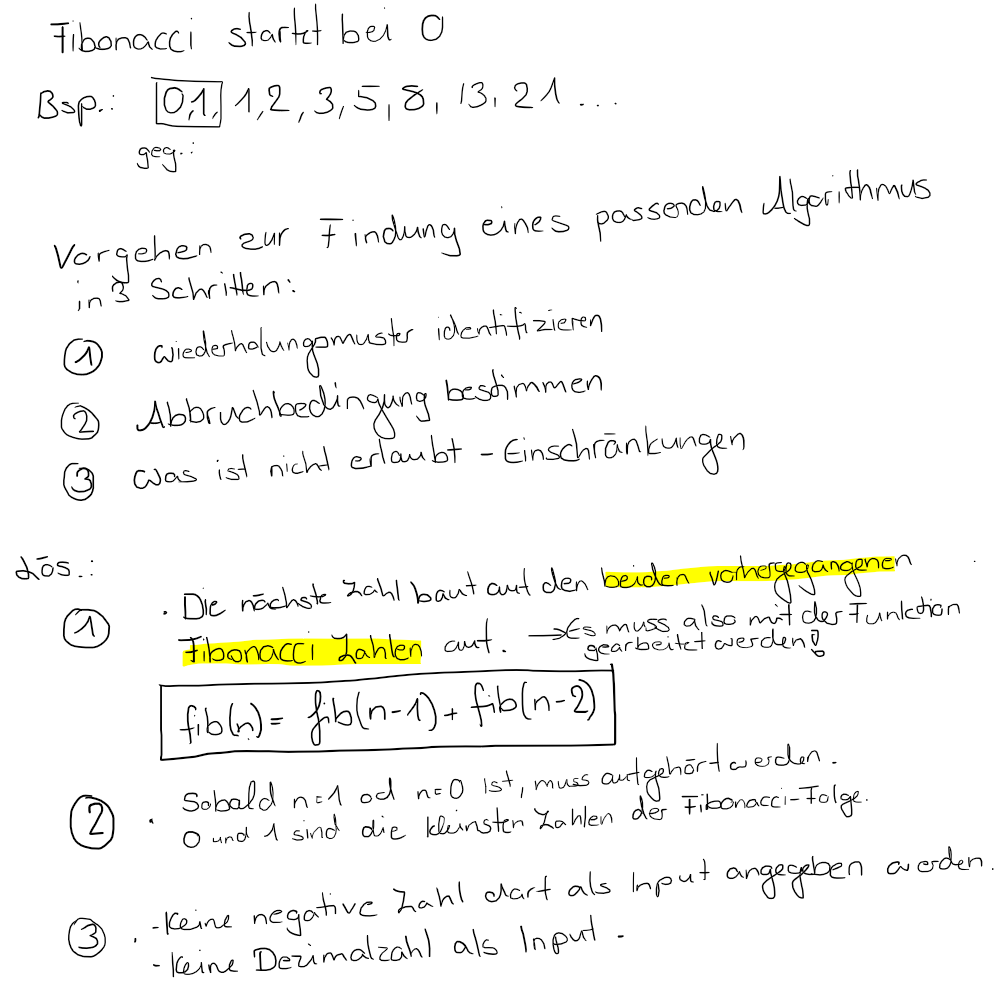 Fibonacci startet bei 0
Bsp.: 0,1, 1,2,3,5,8,13,21...
geg.:
Vorgehen zur Findung eines passenden Algorithmus
in 3 Schritten:
① Wiederholungsmuster identifizieren
② Abbruchbedingung bestimmen
③ Was ist nicht erlaubt - Einschränkungen
Lös.:
① · Die nächste Zahl baut auf den beiden vorhergegangenen
Fibonacci Zahlen auf. → Es muss also mit der Funktion
gearbeitet werden!
fib(n) = fib(n-1) + fib(n-2)
② · Sobald n=1 od n=0 ist, muss aufgehört werden.
0 und 1 sind die kleinsten Zahlen der Fibonacci-Folge.
③ · - Keine negative Zahl darf als Input angegeben werden.
- Keine Dezimalzahl als Input.